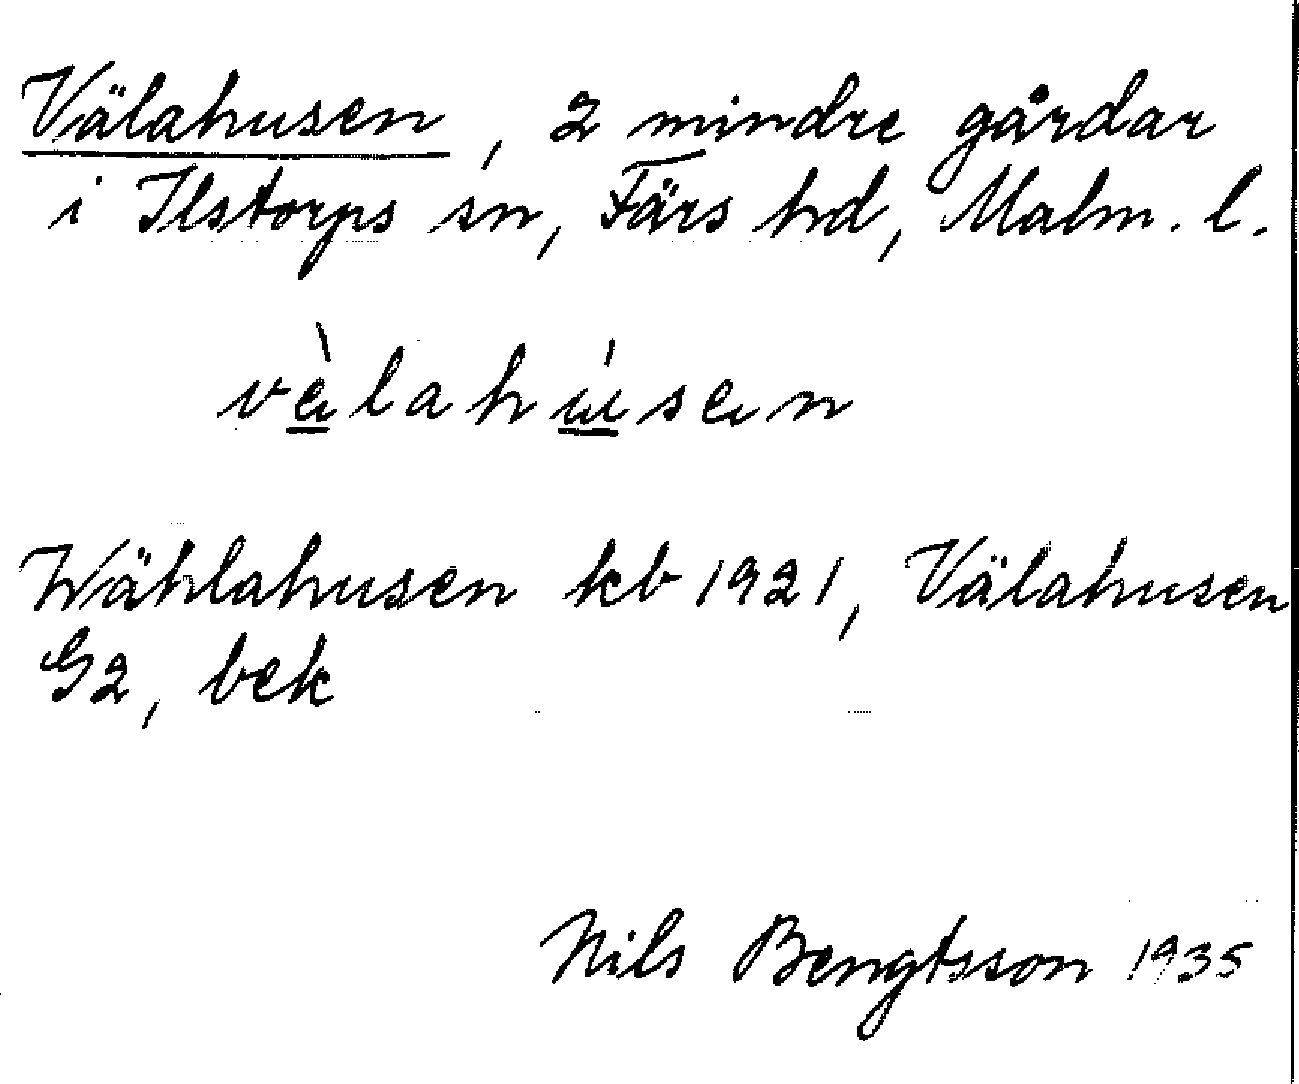 Välahusen, 2 mindre gårdar
i Ilstorps sn, Färs hd, Malm. l.
vèlahúsen
Wählahusen kb 1921, Välahusen
G2, bek
Nils Bengtsson 1935